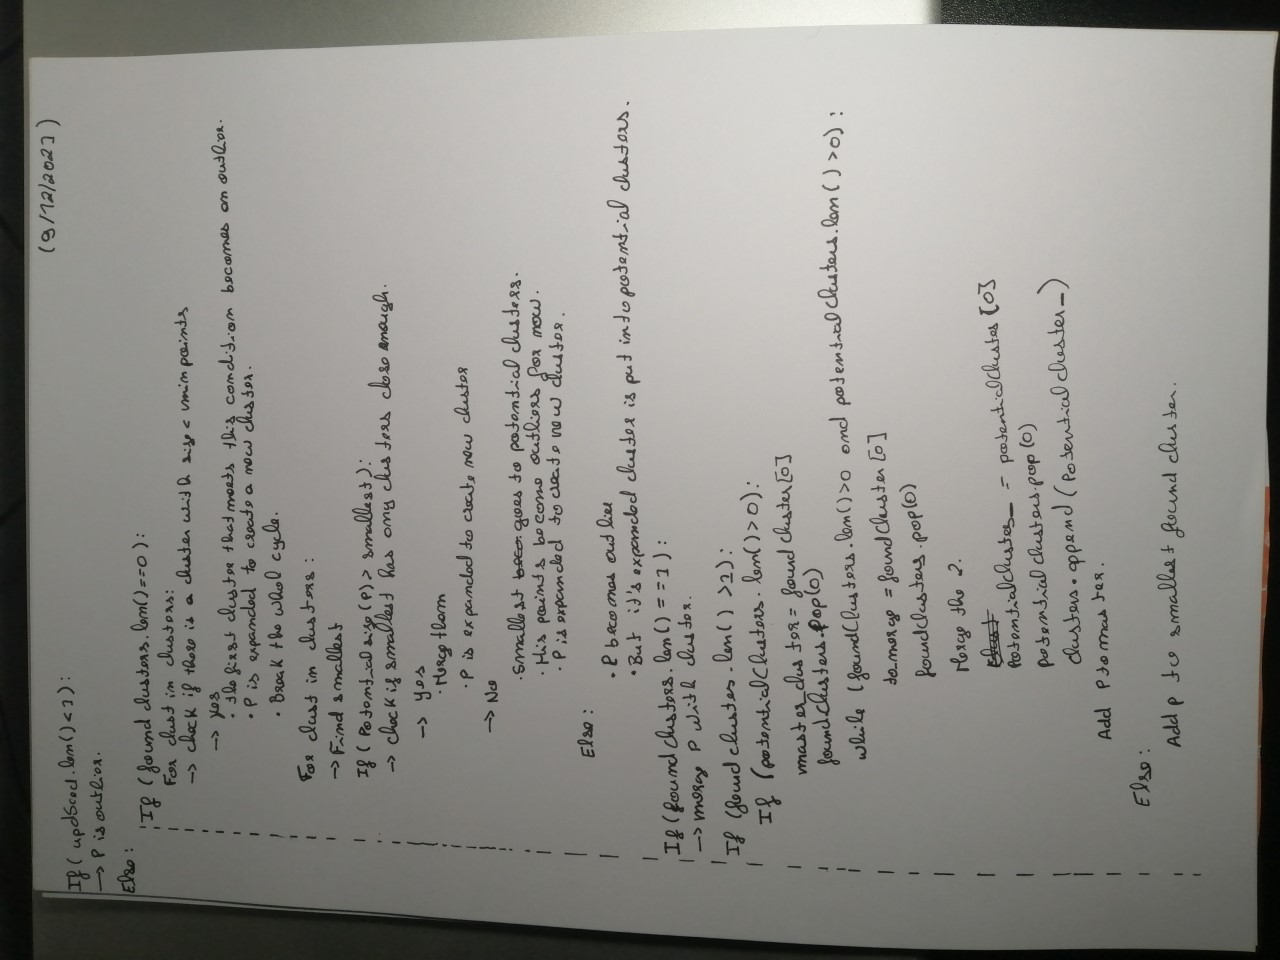 (9/12/2021)
If (updSced.len() < 1):
→ P is outlier.
Else:
If (found clusters.len() == 0):
For clust in clusters:
→ check if there is a cluster with size < minpoints
→ yes
• the first cluster that meets this condition becomes an outlier.
• P is expanded to create a new cluster.
• Break the whol cycle.
For clust in clusters:
→ Find smallest
If (Potential size (P) > smallest):
→ check if smallest has any clusters close enough.
→ yes
• Merge them
• P is expanded to create new cluster
→ No
• Smallest goes to potential clusters.
• His points become outliers for now.
• P is expanded to create new cluster.
Else:
• P becomes outlier
• But it's expanded cluster is put into potential clusters.
If (found clusters.len() == 1):
→ merge P with cluster.
If (found clusters.len() > 1):
If (potential clusters.len() > 0):
master_cluster = found cluster [0]
found clusters.pop(0)
while (found clusters.len() > 0 and potential clusters.len() > 0):
to merge = found cluster [0]
found clusters.pop(0)
Merge the 2.
Potential cluster_ = potential clusters [0]
potential clusters.pop(0)
clusters.append(Potential cluster_)
Add P to master.
Else:
Add P to smallest found cluster.